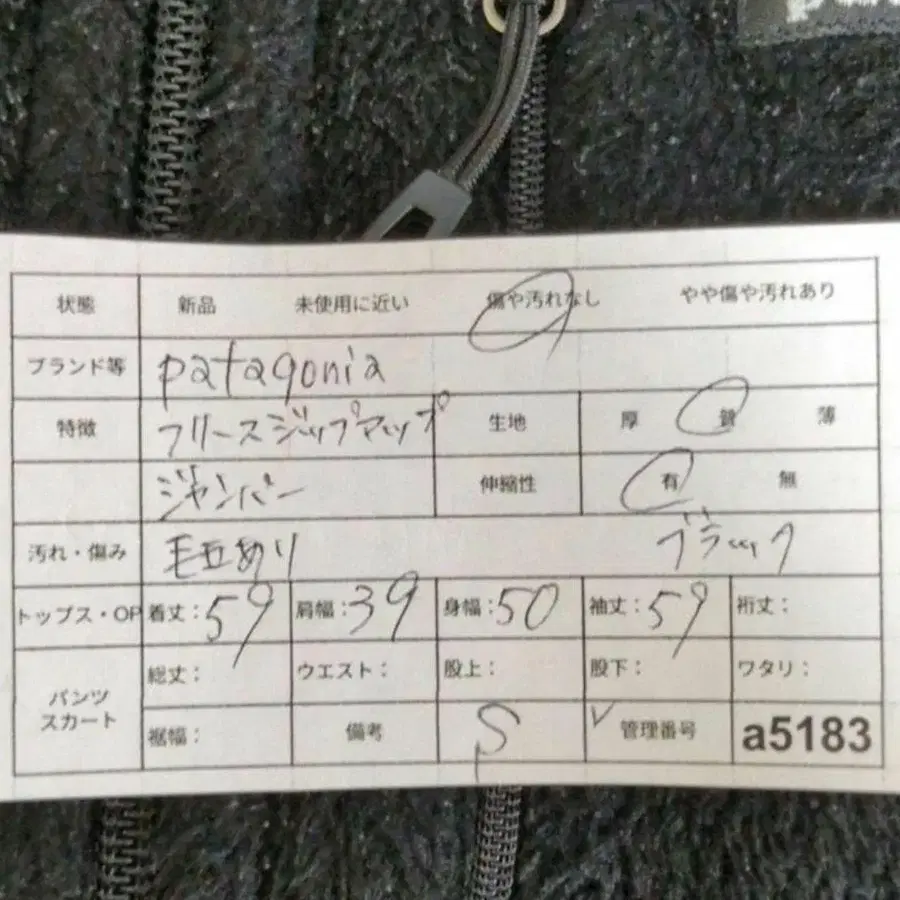 状態 新品 未使用に近い 傷や汚れなし やや傷や汚れあり
ブランド等 patagonia
特徴 フリースジップアップ 生地 厚 普 薄
ジャンパー 伸縮性 有 無
汚れ・傷み 毛玉あり ブラック
トップス・OP 着丈:59 肩幅:39 身幅:50 袖丈:59 裄丈:
パンツ スカート 総丈: ウエスト: 股上: 股下: ワタリ:
裾幅: 備考 S 管理番号 a5183